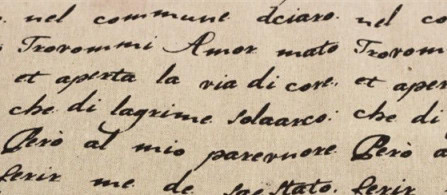 nel commune dciaro. nel co
Trovommi Amor mato Trovom
et aperta la via di core. et aper
che di lagrime solaarco: che di
Però al mio parernore Però a
ferir me de saestato. ferir